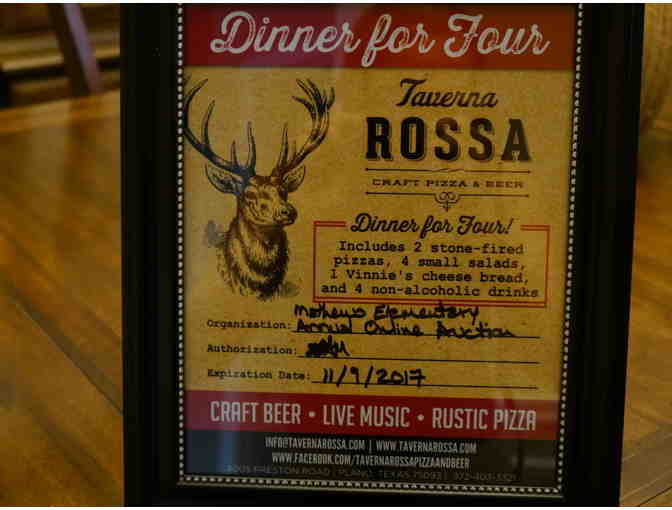 Dinner for Four
Taverna
ROSSA
CRAFT PIZZA & BEER
Dinner for Four!
Includes 2 stone-fired
pizzas, 4 small salads,
1 Vinnie's cheese bread,
and 4 non-alcoholic drinks
Mathews Elementary
Organization: Annual Online Auction
Authorization:
Expiration Date: 11/9/2017
CRAFT BEER • LIVE MUSIC • RUSTIC PIZZA
INFO@TAVERNAROSSA.COM | WWW.TAVERNAROSSA.COM
WWW.FACEBOOK.COM/TAVERNAROSSAPIZZAANDBEER
4005 PRESTON ROAD | PLANO, TEXAS 75093 | 972-403-3321